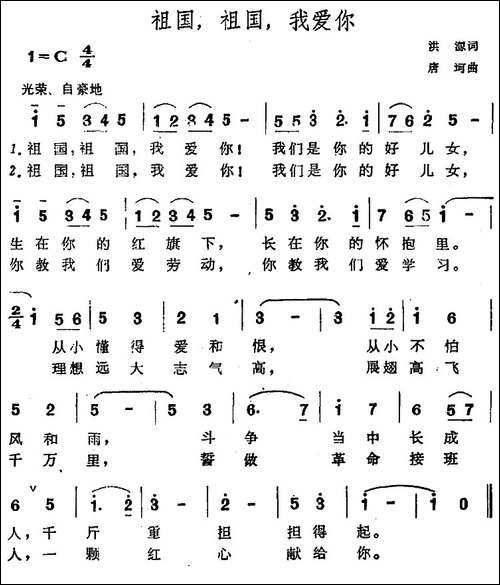 祖国，祖国，我爱你
1=C 4/4
洪 源词
唐 珂曲
光荣、自豪地
i 5 3 4 5 | 1 2 3 4 5 - | 5 5 3 2. i | 7 6 2 5 - |
1.祖国，祖 国，我 爱 你！ 我们是 你的好 儿 女，
2.祖国，祖 国，我 爱 你！ 我们是 你的好 儿 女，
i 5 3 4 5 | 1 2 3 4 5 - | 5 3 2. i | 7 6 5 i - |
生在你 的 红 旗 下， 长在你 的 怀 抱 里。
你教我 们 爱 劳 动， 你教我 们 爱 学 习。
2/4 i 5 6 | 5 3 | 2 1 | 3 - | 3 - | 3 i 2 | i 6 |
从小 懂 得 爱 和 恨， 从小 不 怕
理想 远 大 志 气 高， 展翅 高 飞
5 2 | 5 - | 5 3 | 6. 7 | i 7 | 6 5 7 |
风 和 雨， 斗 争 当 中 长 成
千 万 里， 誓 做 革 命 接 班
6 5 | i. 2 | 3 - | 2 - | i. 2 | i - | i 0 ‖
人，千 斤 重 担 担得 起。
人，一 颗 红 心 献给 你。